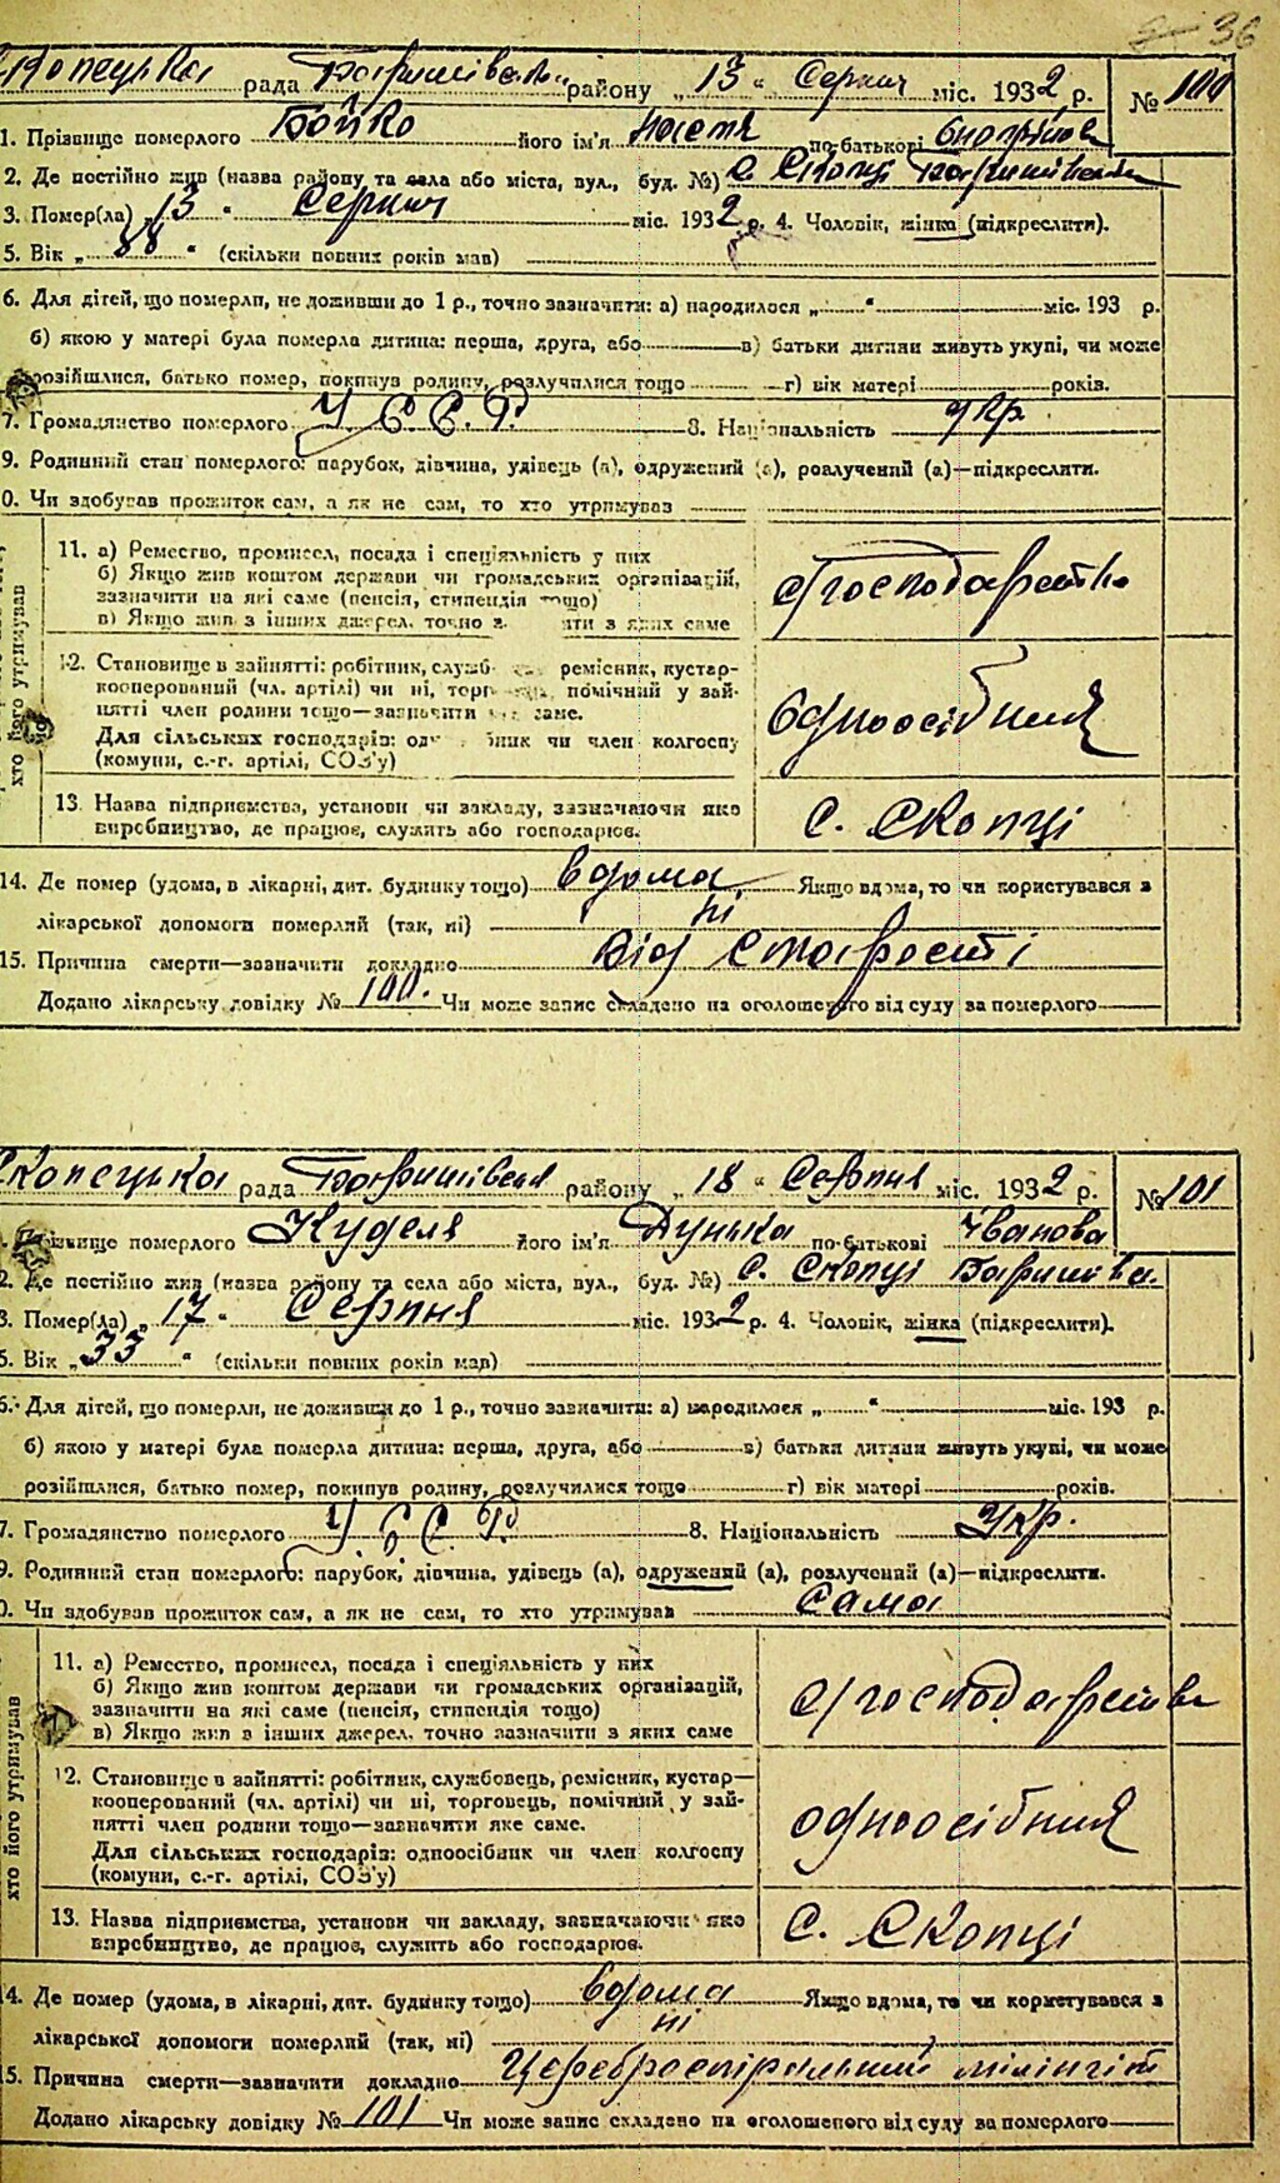 36
Скопецька рада Баришівськ. району „13“ Серпня міс. 1932 р. № 100
1. Прізвище померлого Бойко його ім'я Настя по-батькові Онопріїва
2. Де постійно жив (назва району та села або міста, вул., буд. №) с. Скопці Баришівськ
3. Помер(ла) „13“ Серпня міс. 1932 р. 4. Чоловік, жінка (підкреслити).
5. Вік „88“ (скільки повних років мав)
6. Для дітей, що померли, не доживши до 1 р., точно зазначити: а) народилося „ “ міс. 193 р.
б) якою у матері була померла дитина: перша, друга, або в) батьки дитини живуть укупі, чи може
розійшлися, батько помер, покинув родину, розлучилися тощо г) вік матері років.
7. Громадянство померлого У.С.С.Р. 8. Національність укр
9. Родинний стан померлого: парубок, дівчина, удівець (а), одружений (а), розлучений (а)—підкреслити.
0. Чи здобував прожиток сам, а як не сам, то хто утримував
хто його утримував
11. а) Ремество, промисел, посада і спеціяльність у них
б) Якщо жив коштом держави чи громадських організацій,
зазначити на які саме (пенсія, стипендія тощо)
в) Якщо жив з інших джерел, точно з ити з яких саме
с/господарство
12. Становище в зайнятті: робітник, служб ремісник, кустар-
кооперований (чл. артілі) чи ні, торг помічний у зай-
нятті член родини тощо—зазначити яке саме.
Для сільських господарів: од бник чи член колгоспу
(комуни, с.-г. артілі, СОЗ'у)
Одноосібниця
13. Назва підприємства, установи чи закладу, зазначаючи яко
виробництво, де працює, служить або господарює.
с. Скопці
14. Де помер (удома, в лікарні, дит. будинку тощо) вдома, Якщо вдома, то чи користувався з
лікарської допомоги померлий (так, ні) ні
15. Причина смерти—зазначити докладно від старости
Додано лікарську довідку № 100. Чи може запис складено на оголошеного від суду за померлого
Скопецька рада Баришівськ району „18“ Серпня міс. 1932 р. № 101
Прізвище померлого Куделя його ім'я Дунька по-батькові Іванова
2. Де постійно жив (назва району та села або міста, вул., буд. №) с. Скопці Баришівс.
3. Помер(ла) „17“ Серпня міс. 1932 р. 4. Чоловік, жінка (підкреслити).
5. Вік „33“ (скільки повних років мав)
6. Для дітей, що померли, не доживши до 1 р., точно зазначити: а) народилося „ “ міс. 193 р.
б) якою у матері була померла дитина: перша, друга, або в) батьки дитини живуть укупі, чи може
розійшлися, батько помер, покинув родину, розлучилися тощо г) вік матері років.
7. Громадянство померлого У.С.С.Р. 8. Національність Укр.
9. Родинний стан померлого: парубок, дівчина, удівець (а), одружений (а), розлучений (а)—підкреслити.
0. Чи здобував прожиток сам, а як не сам, то хто утримував Сама
хто його утримував
11. а) Ремество, промисел, посада і спеціяльність у них
б) Якщо жив коштом держави чи громадських організацій,
зазначити на які саме (пенсія, стипендія тощо)
в) Якщо жив з інших джерел, точно зазначити з яких саме
с/господарство
12. Становище в зайнятті: робітник, службовець, ремісник, кустар—
кооперований (чл. артілі) чи ні, торговець, помічний у зай-
нятті член родини тощо—зазначити яке саме.
Для сільських господарів: одноосібник чи член колгоспу
(комуни, с.-г. артілі, СОЗ'у)
одноосібниця
13. Назва підприємства, установи чи закладу, зазначаючи яко
виробництво, де працює, служить або господарює.
с. Скопці
14. Де помер (удома, в лікарні, дит. будинку тощо) вдома Якщо вдома, то чи користувався з
лікарської допомоги померлий (так, ні) ні
15. Причина смерти—зазначити докладно Цереброспіральний мінінгіт
Додано лікарську довідку № 101 Чи може запис складено на оголошеного від суду за померлого